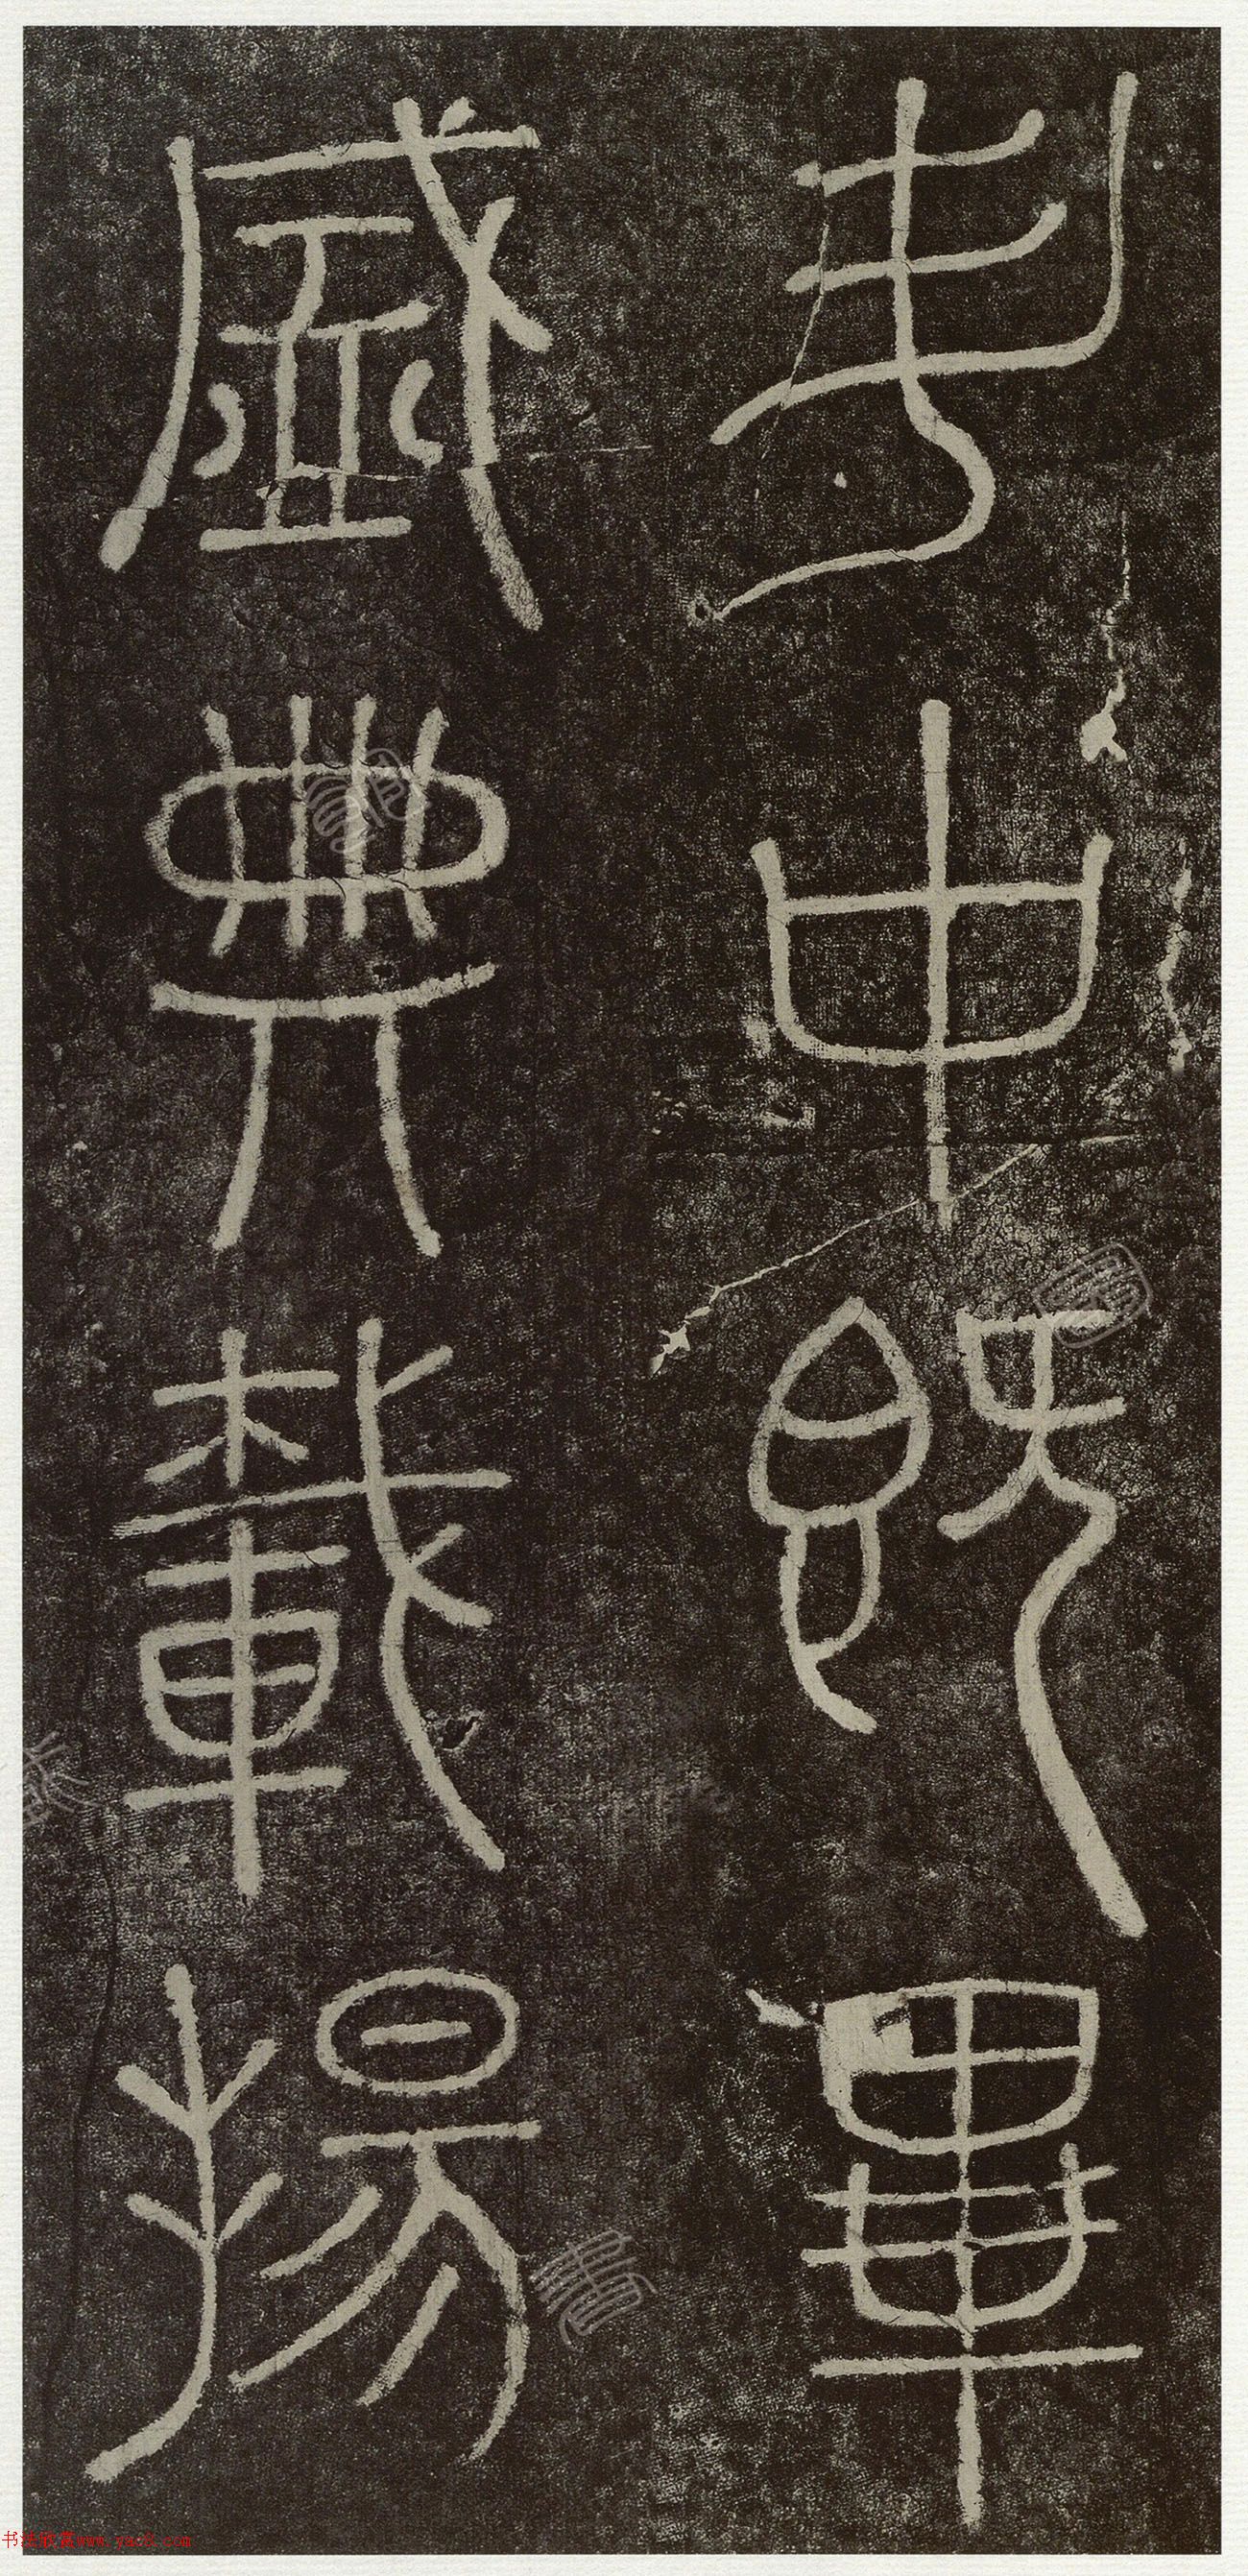 升中既畢
盛典載揚
书法欣赏www.yac8.com